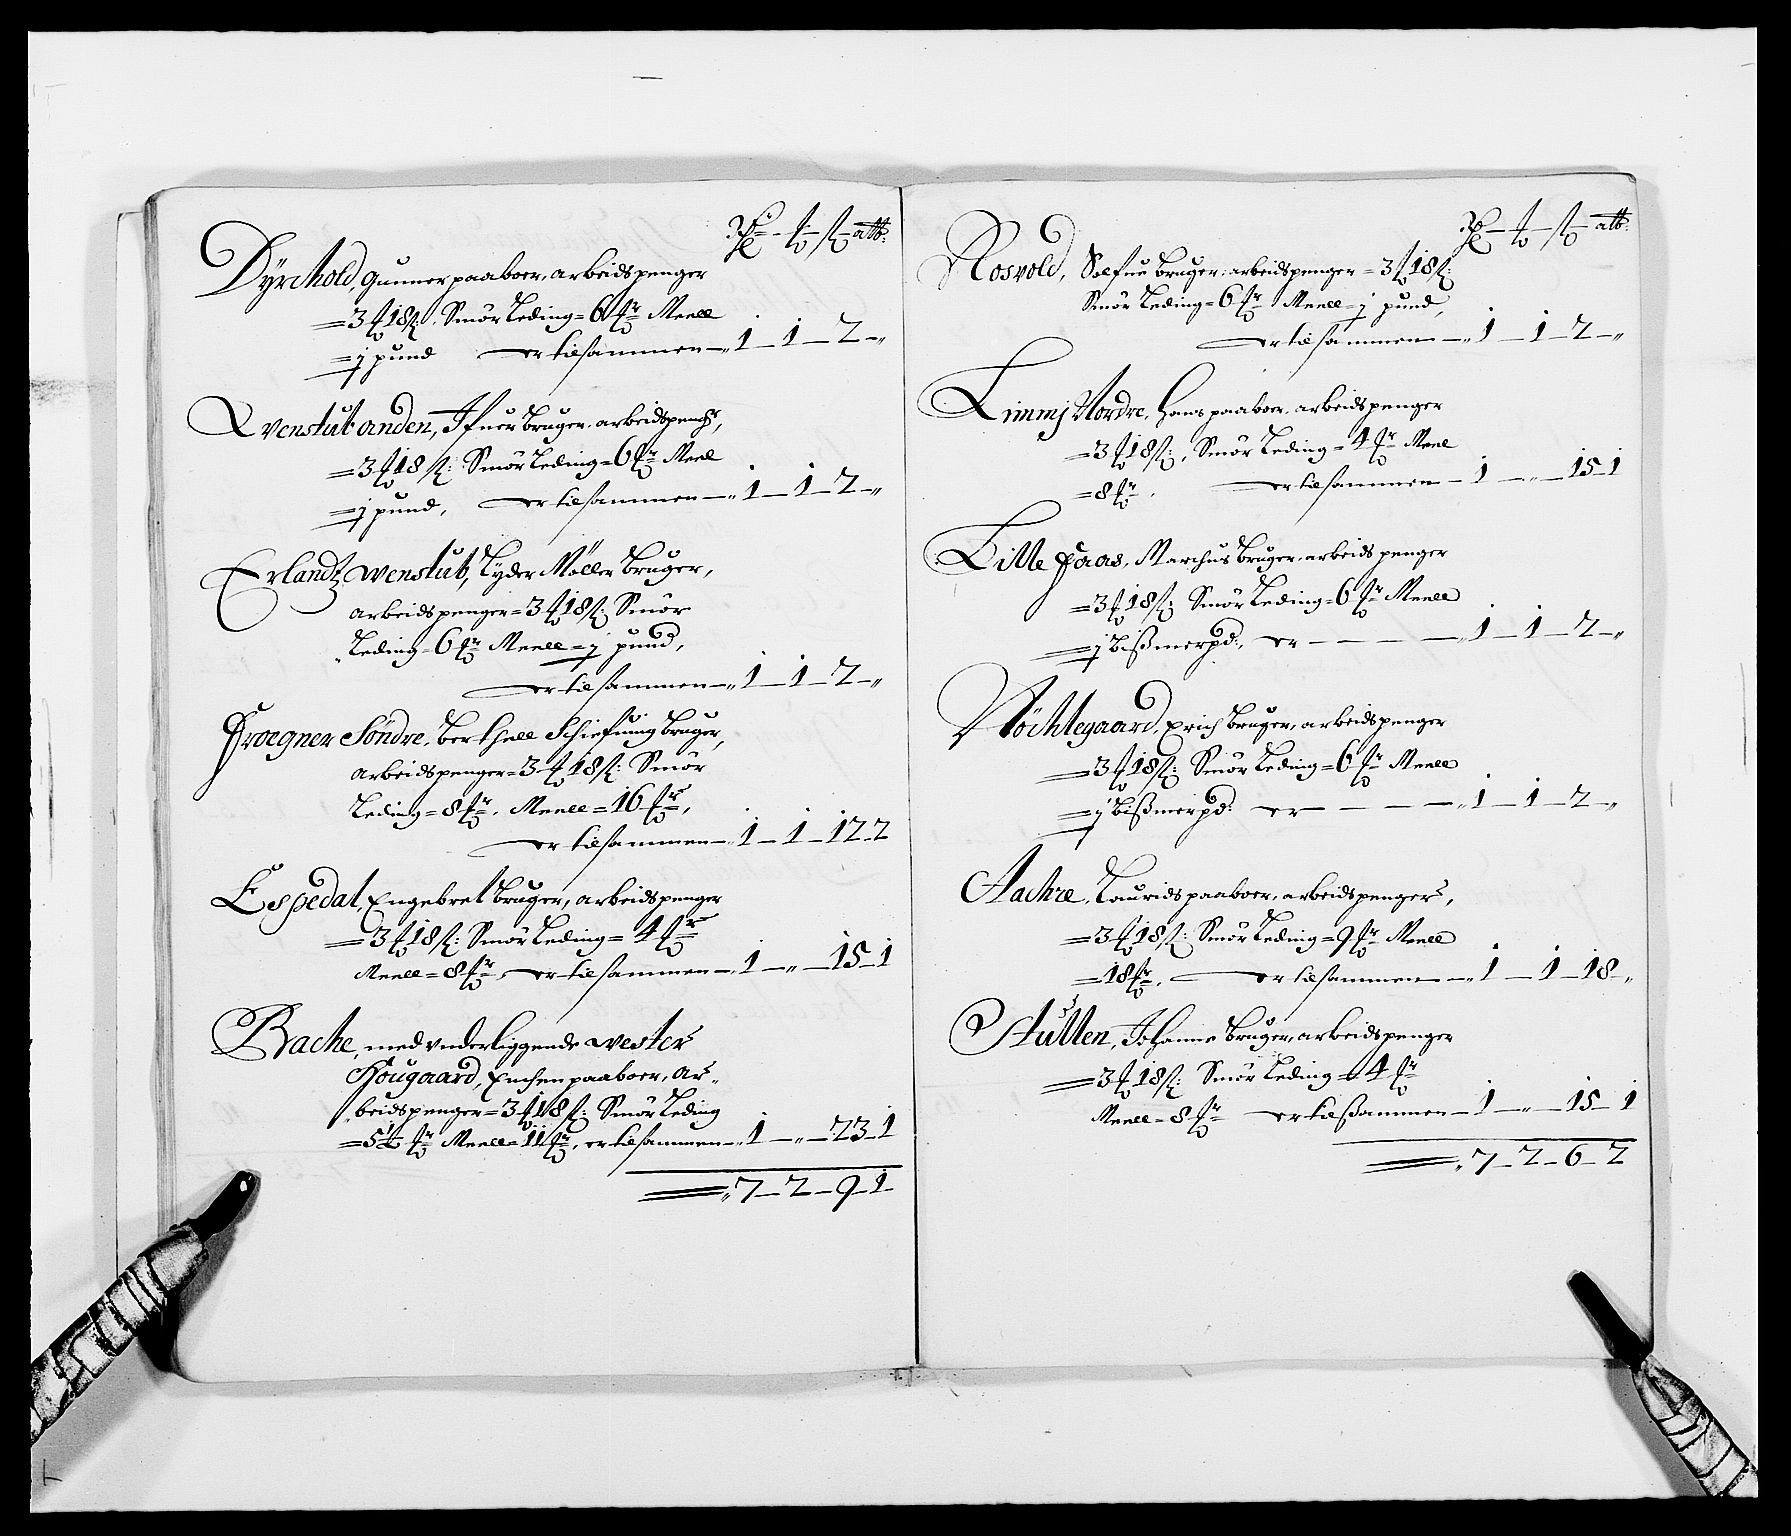 Rdr: – ℔ – ß – alb:
Dÿrchold, Gunner paaboer, arbeidspenger
= 3 ℔ 18 ß: Smör Leding = 6 ℔r Meell
= j pund er tilsammen – „ 1 – 1 – 2 – „
Qvenstub anden, Ifuer bruger, arbeidspengr,
= 3 ℔ 18 ß: Smör Leding = 6 ℔r Meel
= j pund, er tilsammen – „ 1 – 1 – 2 – „
Erlandtz wenstub, Lyder Möller bruger,
arbeidspenger = 3 ℔ 18 ß: Smör
Leding = 6 ℔r Meell = j pund,
er tilsammen – „ 1 – 1 – 2 – „
Froegner Söndre, Berthell Schiefuing bruger,
arbeidspenger = 3 ℔ 18 ß: Smör
Leding = 8 ℔r, Meell = 16 ℔r,
er tilsammen – „ 1 – 1 – 12 – 2
Espedal, Engebret bruger, arbeidspenger
= 3 ℔ 18 ß: Smör Leding = 4 ℔r
Meell = 8 ℔r, er tilsammen – „ 1 – „ – 15 – 1
Bache, med underliggende wester
Hougaard, paaboer, ar„
„beidspenger = 3 ℔ 18 ß: Smör Leding
= 5½ ℔r Meell = 11 ℔r, er tilsammen – „ 1 – „ – 23 – 1
„ 7 – 2 – 9 – 1
Rdr – ℔ – ß – alb:
Rosvold, bruger, arbeidspenger = 3 ℔ 18 ß:
Smör Leding = 6 ℔r Meell = j pund,
er tilsammen – „ 1 – 1 – 2 – „
Limmj Nordre, Hans paaboer, arbeidspenger
= 3 ℔ 18 ß:, Smör Leding = 4 ℔r Meel
= 8 ℔r, er tilsammen – 1 – „ – 15 – 1
Lille Faas, Marchus bruger, arbeids penger
= 3 ℔ 18 ß: Smör Leding = 6 ℔r Meell
= j Bißmerpd:, er – – – – „ 1 – 1 – 2 – „
Nöchlegaard, Erich bruger, arbeidspenger
= 3 ℔ 18 ß: Smör Leding = 6 ℔r Meell
= j Bißmerpd: er – – – – „ 1 – 1 – 2 – „
Aachre, Laurids paaboer, arbeidspenger,
= 3 ℔ 18 ß: Smör Leding = 9 ℔r Meell
= 18 ℔r, er tilsammen – „ 1 – 1 – 18 – „
Stullen, Johanne bruger, arbeidspenger
= 3 ℔ 18 ß: Smör Leding = 4 ℔r
Meell = 8 ℔r er tilßammen – 1 – „ – 15 – 1
„ 7 – 2 – 6 – 2